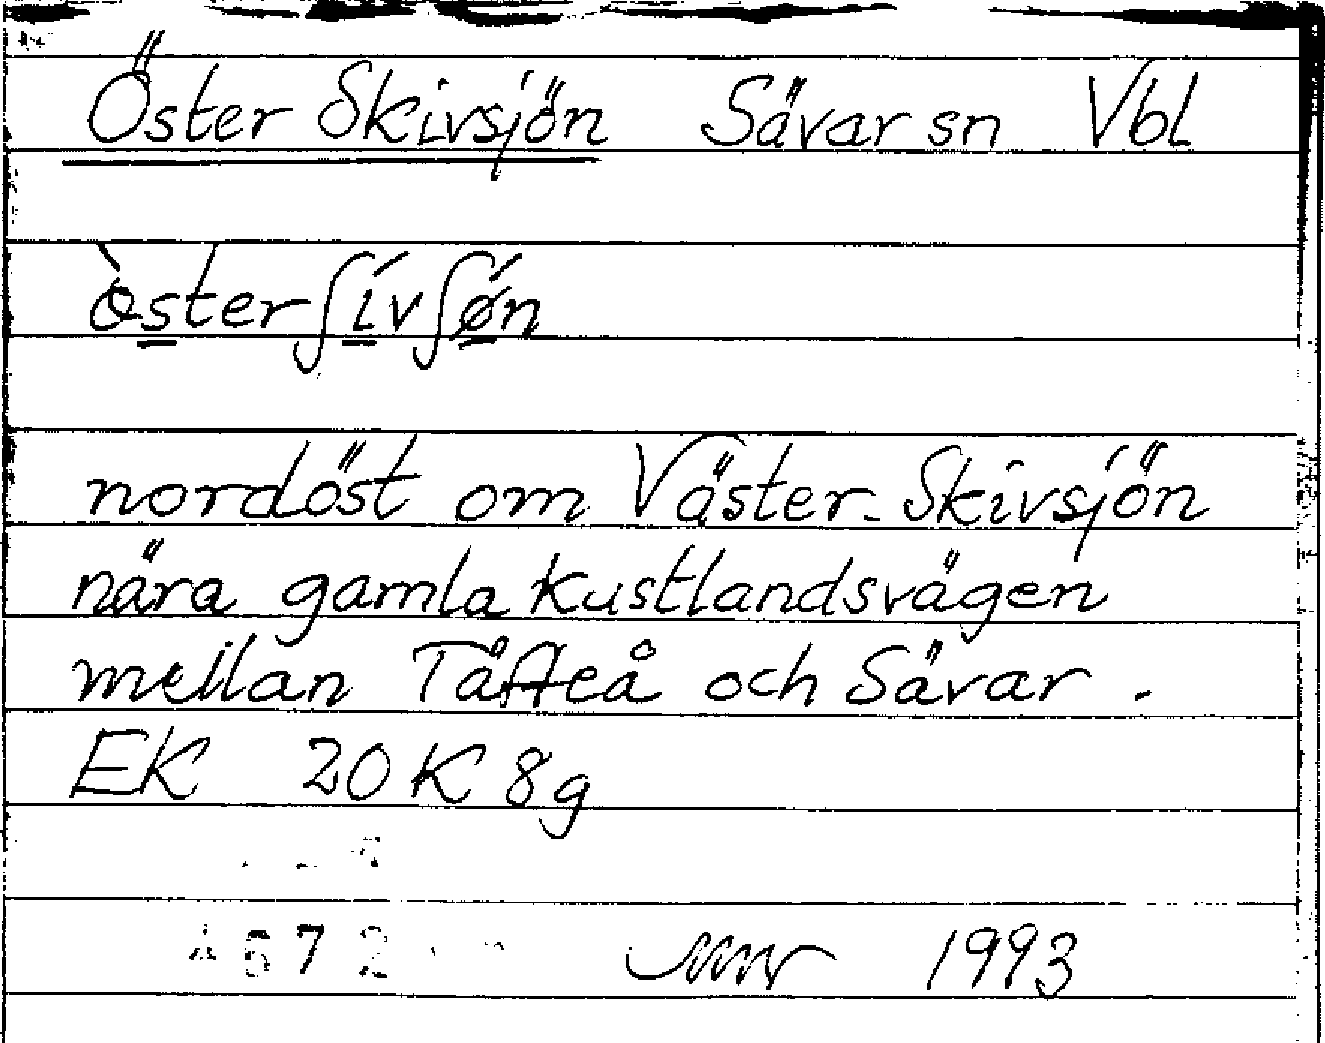 Öster Skivsjön Sävar sn Vbl
ö̀sterʃívʃǿn
nordöst om Väster-Skivsjön
nära gamla kustlandsvägen
mellan Täfteå och Sävar.
EK 20K 8g
672 1993